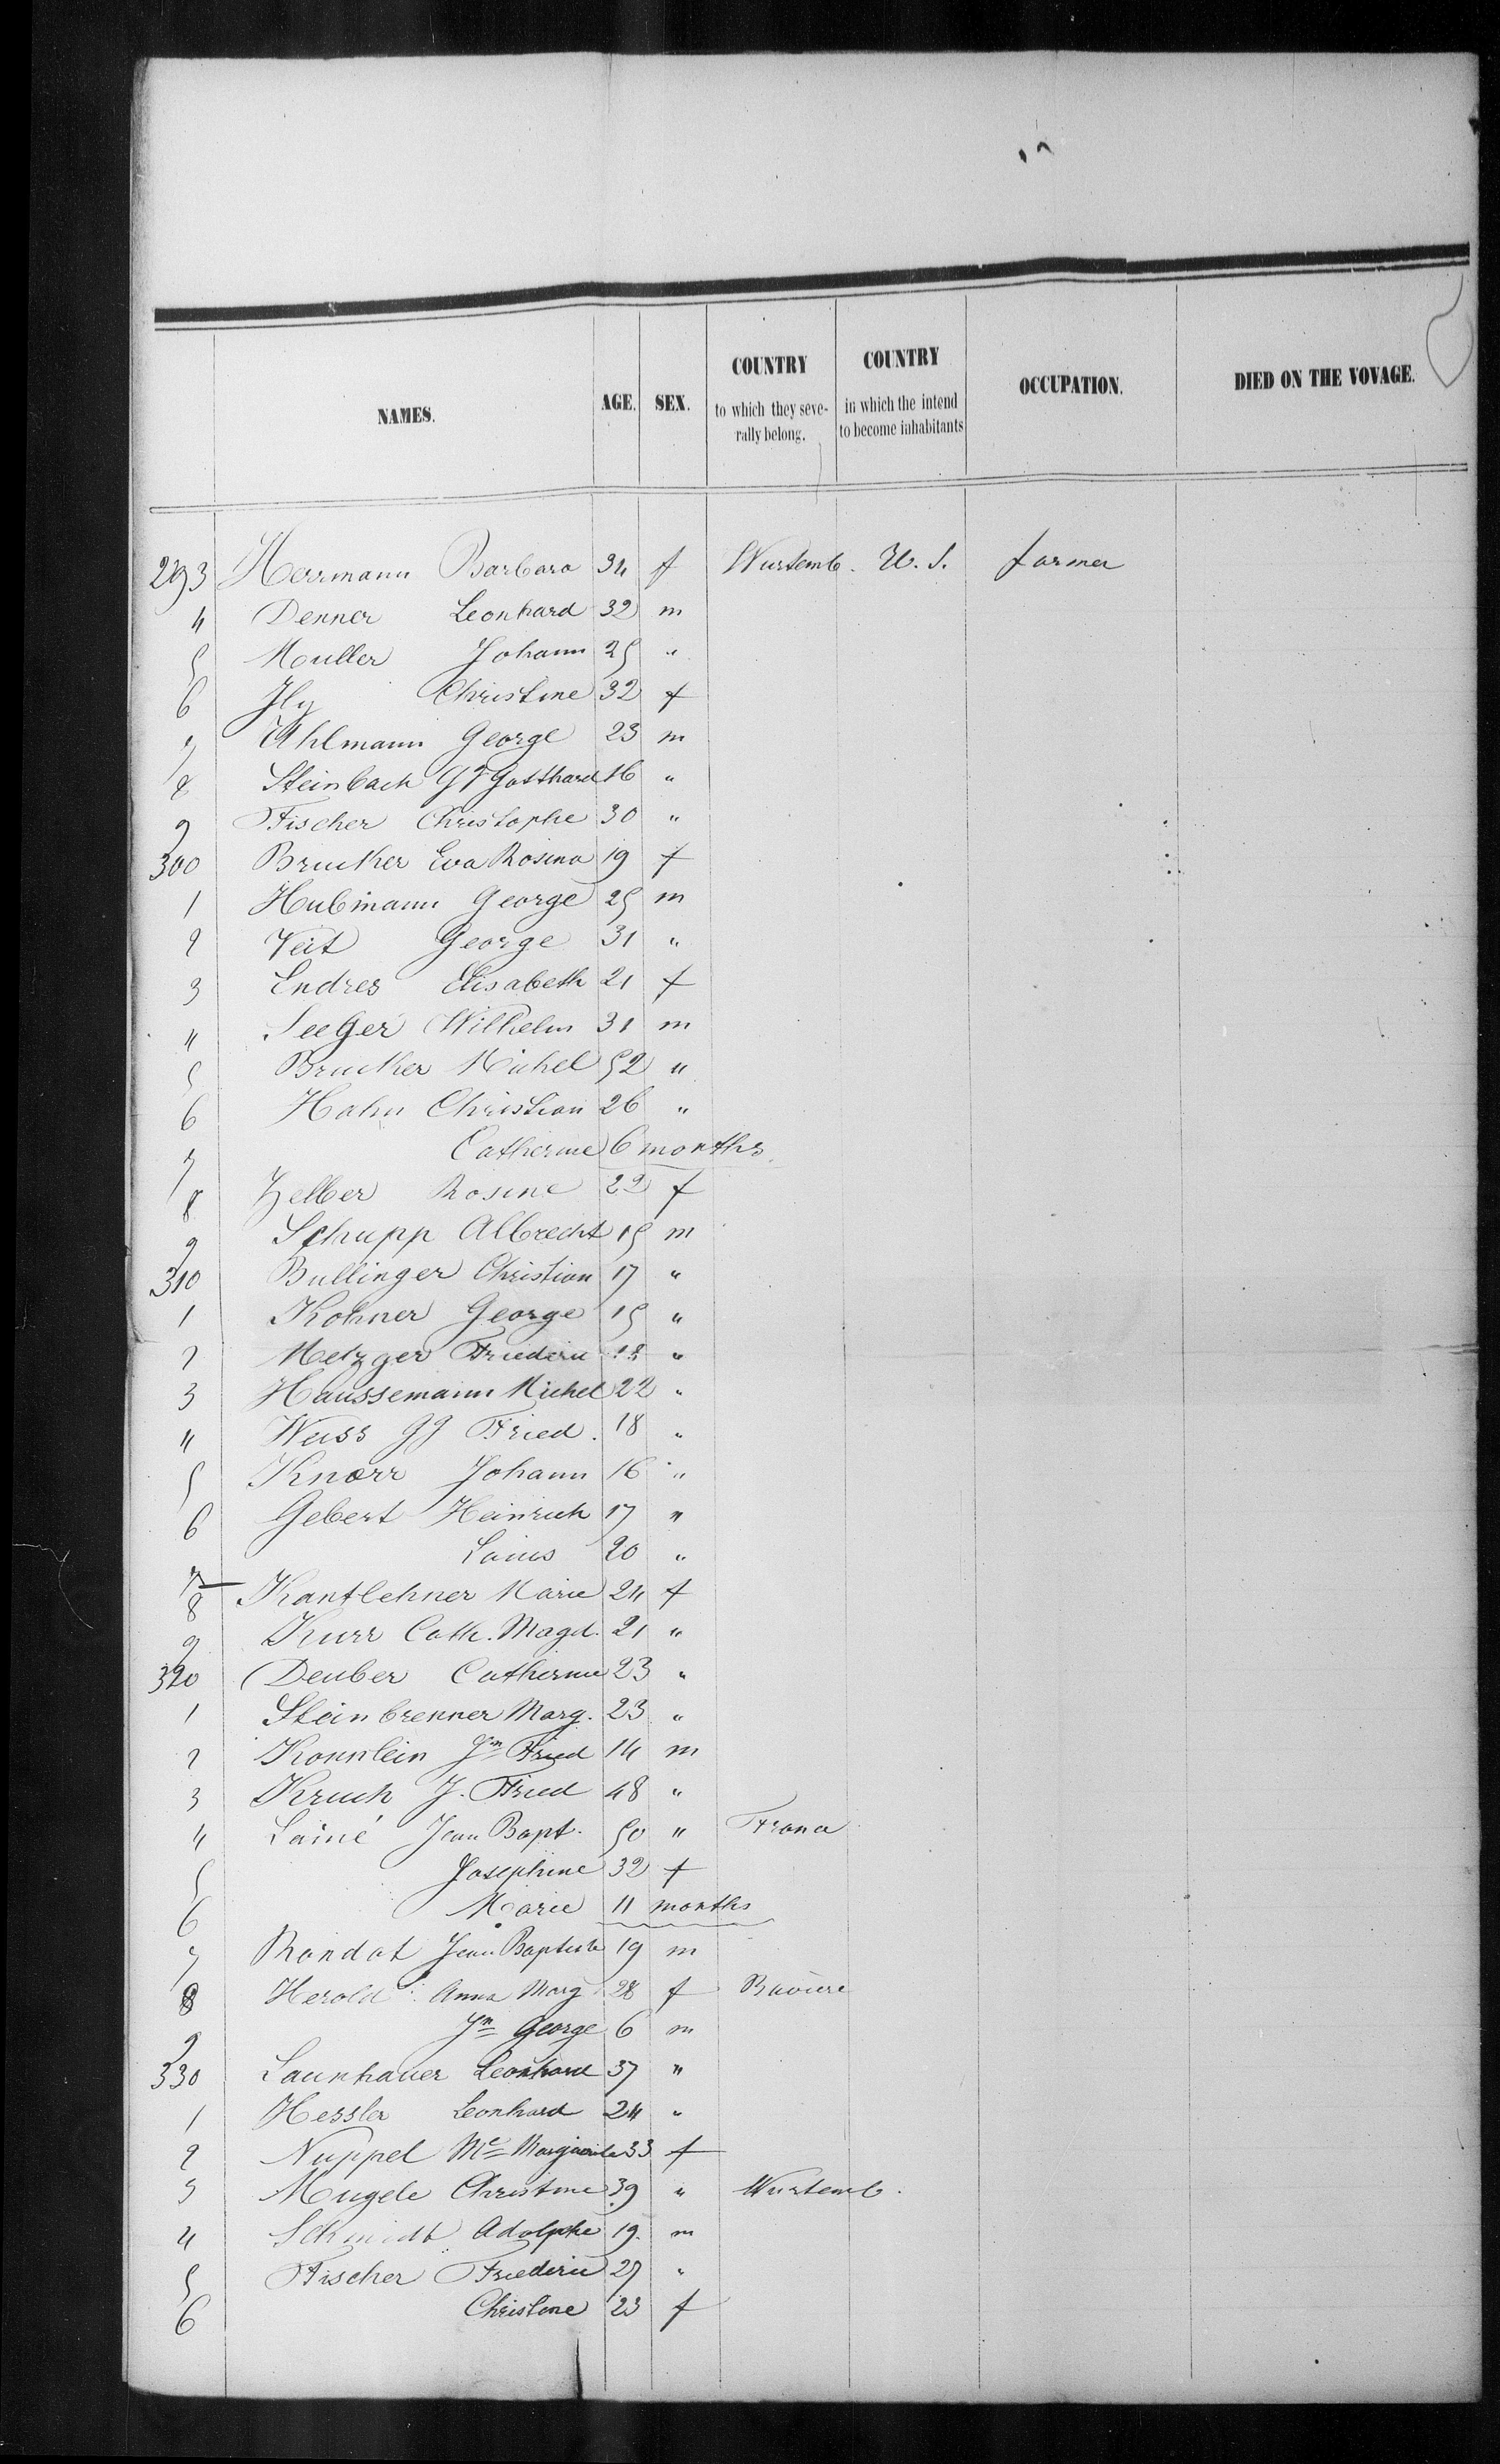 NAMES. AGE. SEX. COUNTRY to which they severally belong. COUNTRY in which the intend to become inhabitants OCCUPATION. DIED ON THE VOVAGE.
293 Herrmann Barbara 34 f Wurtemb. U. S. farmer
4 Denner Leonhard 32 m
5 Mouller Johann 25 "
6 Jly Christine 32 f
7 Uhlmann George 23 m
8 Steinbach Gg Gotthard 16 "
9 Fischer Christophe 30 "
300 Brucker Eva Rosina 19 f
1 Hubmann George 25 m
2 Veit George 31 "
3 Endres Elisabeth 21 f
4 Seeger Wilhelm 31 m
5 Brucker Michel 52 "
6 Hahn Christian 26 "
7 Catherine 6 months
8 Zelber Rosine 22 f
9 Schupp Albrecht 15 m
310 Bullinger Christian 17 "
1 Kohner George 15 "
2 Metzger Friederic 18 "
3 Haussemann Michel 22 "
4 Weiss Gg Fried. 18 "
5 Knorr Johann 16 "
6 Gebert Heinrich 17 "
7 Louis 20 "
8 Kantlehner Marie 24 f
9 Kurr Cath. Magd. 21 "
320 Deuber Catherine 23 "
1 Steinbrenner Marg. 23 "
2 Konnlein Jn Fried 14 m
3 Kruck J. Fried 48 "
4 Lainé Jean Bapt. 50 " France
5 Josephine 32 f
6 Marie 11 months
7 Rondot Jean Baptiste 19 m
8 Herold Anna Marg 28 f Baviere
9 Jn George 6 m
330 Launhauer Leonhard 37 "
1 Hessler Leonhard 24 "
2 Nuppel Me Marguerite 33 f
3 Mugele Christine 39 " Wurtemb.
4 Schmidt Adolphe 19 m
5 Fischer Friederic 27 "
6 Christine 23 f